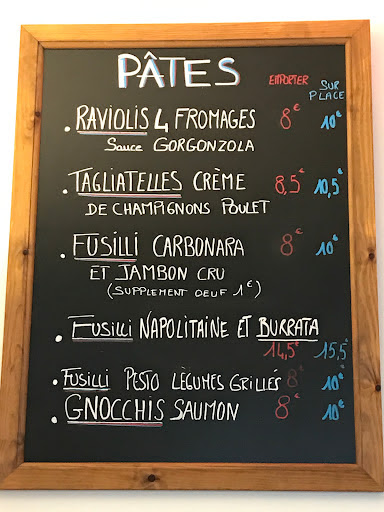 PÂTES
EMPORTER
SUR PLACE
. RAVIOLIS 4 FROMAGES 8€ 10€
Sauce GORGONZOLA
. TAGLIATELLES CRÈME 8,5€ 10,5€
DE CHAMPIGNONS POULET
. FUSILLI CARBONARA 8€ 10€
ET JAMBON CRU
(SUPPLEMENT OEUF 1€)
. FUSILLI NAPOLITAINE ET BURRATA
14,5€ 15,5€
. FUSILLI PESTO LÈGUMES GRILLÉS 8€ 10€
. GNOCCHIS SAUMON 8€ 10€